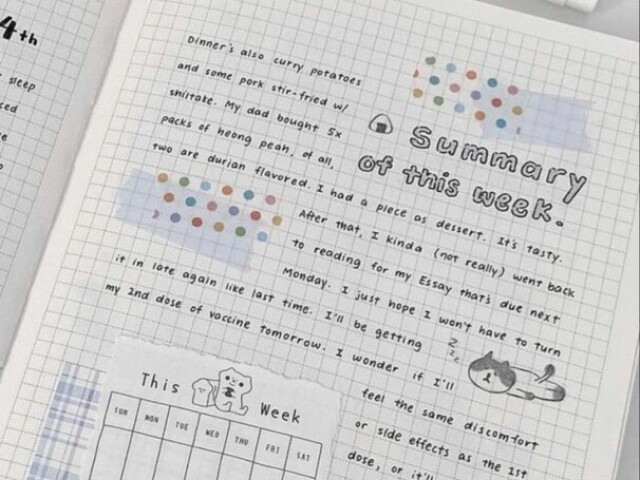 4th
sleep
Dinner's also curry potatoes
and some pork stir-fried w/
shiitake. My dad bought 5x
packs of heong peah, of all,
two are durian flavored. I had a piece as dessert. It's tasty.
Summary
of this week.
After that, I kinda (not really) went back
to reading for my Essay that's due next
Monday. I just hope I won't have to turn
it in late again like last time. I'll be getting
my 2nd dose of vaccine tomorrow. I wonder if I'll
feel the same discomfort
or side effects as the 1st
dose, or it'll
z z z
This Week
SUN MON TUE WED THU FRI SAT